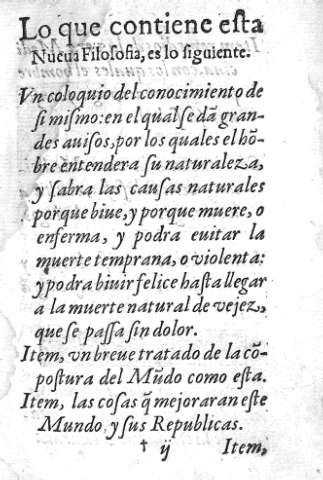 Lo que contiene eſta
Nueua Filoſofia, es lo ſiguiente.
Vn coloquio del conocimiento de
ſi miſmo: en el qual ſe dã gran-
des auiſos, por los quales el hõ-
bre entendera ſu naturaleza,
y ſabra las cauſas naturales
porque biue, y porque muere, o
enferma, y podra euitar la
muerte temprana, o violenta:
y podra biuir felice haſta llegar
a la muerte natural de vejez,
que ſe paſſa ſin dolor.
Item, vn breue tratado de la cõ-
poſtura del Mũdo como eſta.
Item, las coſas q̃ mejoraran eſte
Mundo, y ſus Republicas.
† ij Item,